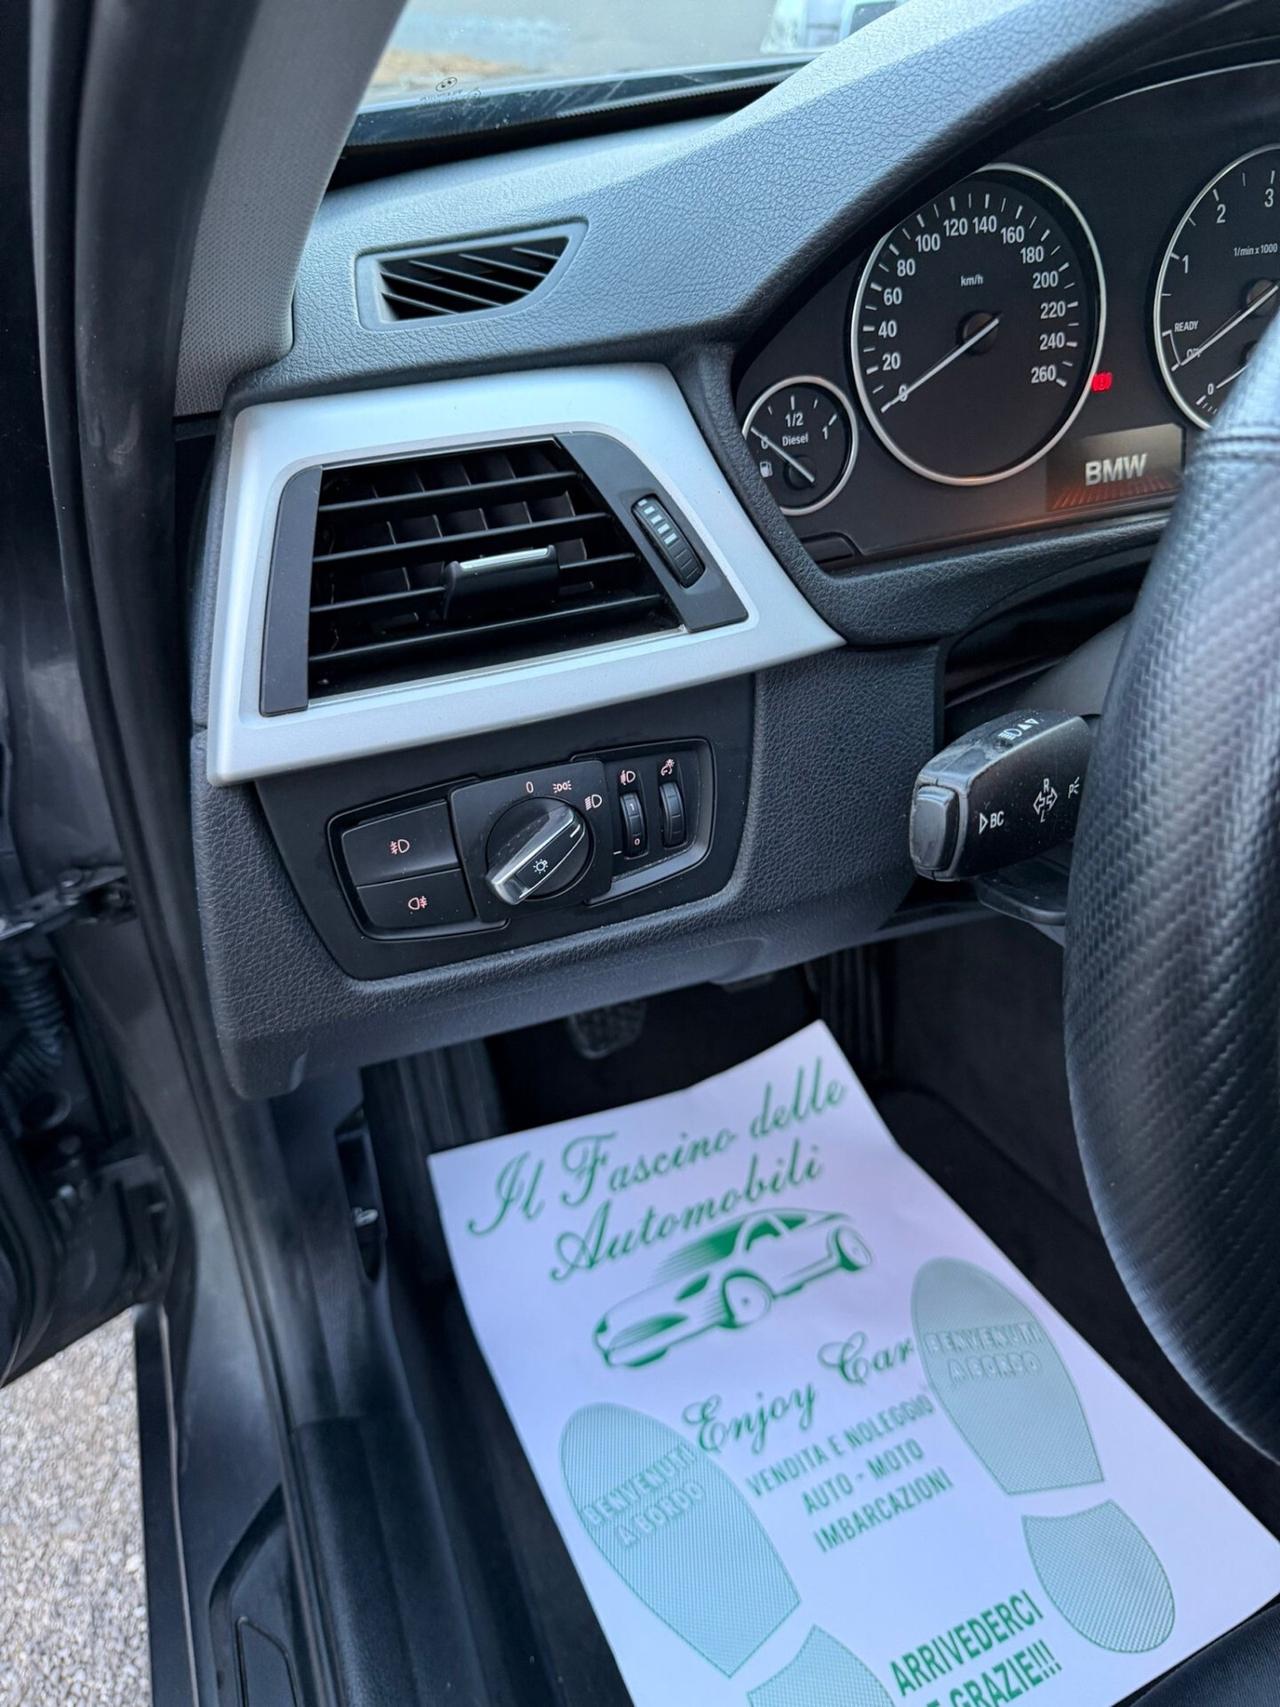 80 100 120 140 160 180 200 220 240 260
60
40
20
0
km/h
1 2 3
1/min x 1000
READY
0
0 1/2 1
Diesel
BMW
0
1
0
BC
R
L
Il Fascino delle
Automobili
Enjoy Car
VENDITA E NOLEGGIO
AUTO - MOTO
IMBARCAZIONI
BENVENUTI
A BORDO
BENVENUTI
A BORDO
ARRIVEDERCI
E GRAZIE!!!